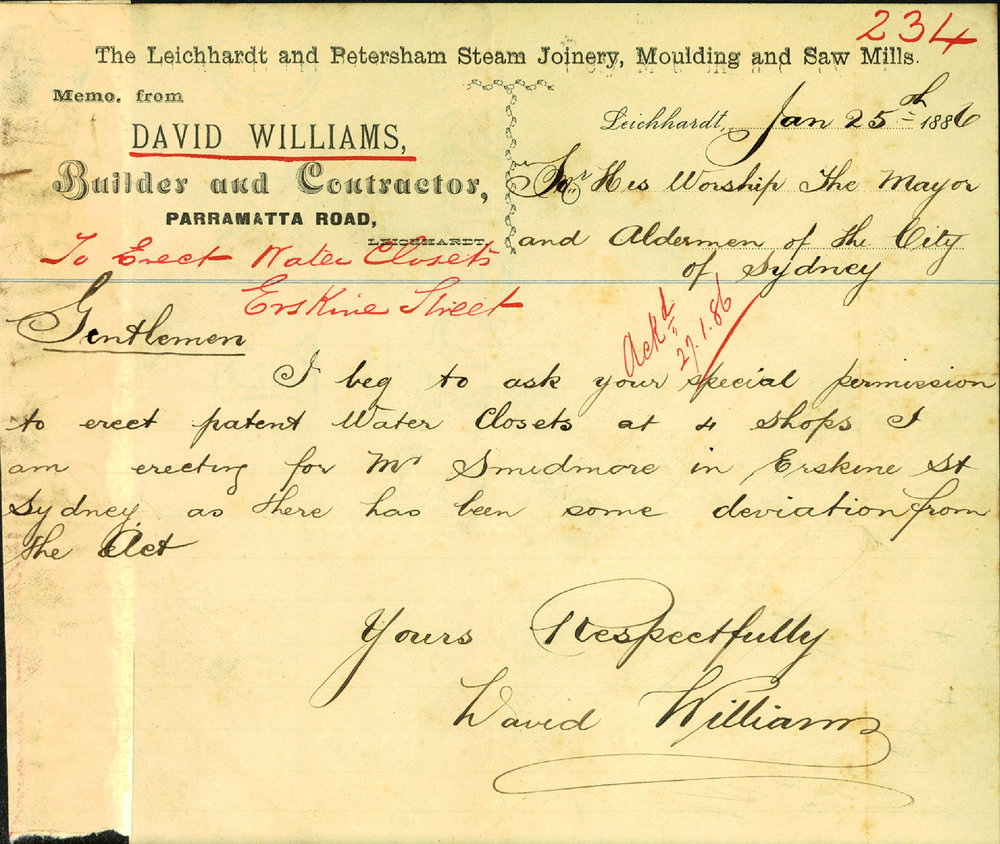 234
The Leichhardt and Petersham Steam Joinery, Moulding and Saw Mills.
Memo. from
DAVID WILLIAMS,
Builder and Contractor,
PARRAMATTA ROAD,
LEICHHARDT.
Leichhardt, Jan 25th 1886
To His Worship The Mayor
and Aldermen of the City
of Sydney
To Erect Water Closets
Erskine Street
Ackd
27.1.86
Gentlemen
I beg to ask your special permission
to erect patent Water Closets at 4 Shops I
am erecting for Mr Smidmore in Erskine St
Sydney, as there has been some deviation from
the Act
Yours Respectfully
David Williams